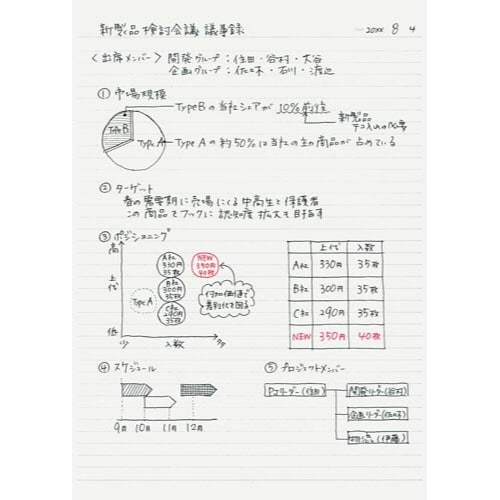 新製品 検討会議 議事録
20XX 8 4
〈出席メンバー〉 開発グループ：住田・谷村・大谷
企画グループ：佐々木・石川・渡辺
① 市場規模
Type B の当社シェアが 10%前後
新製品
テコ入れの必要
Type B
Type A
Type A の約50%は当社の主力商品が占めている
② ターゲット
春の需要期に売場にくる中高生と保護者
この商品をフックに認知度拡大も目指す
③ ポジショニング
高
上代
低
少
入数
多
Type A
A社
330円
35枚
B社
300円
35枚
C社
290円
35枚
NEW
350円
40枚
付加価値で
差別化を図る
上代 入数
A社 330円 35枚
B社 300円 35枚
C社 290円 35枚
NEW 350円 40枚
④ スケジュール
9月 10月 11月 12月
⑤ プロジェクトメンバー
PJリーダー(住田)
開発リーダー(谷村)
企画リーダー(佐々木)
物流(伊藤)